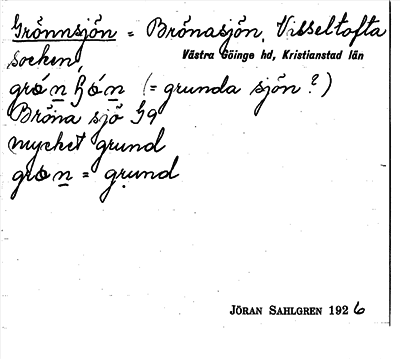 Grönnsjön = Brönasjön, Visseltofta
socken, Västra Göinge hd, Kristianstad län
(= grunda sjön?)
Bröna sjö G9
mycket grund
= grund
JÖRAN SAHLGREN 1926